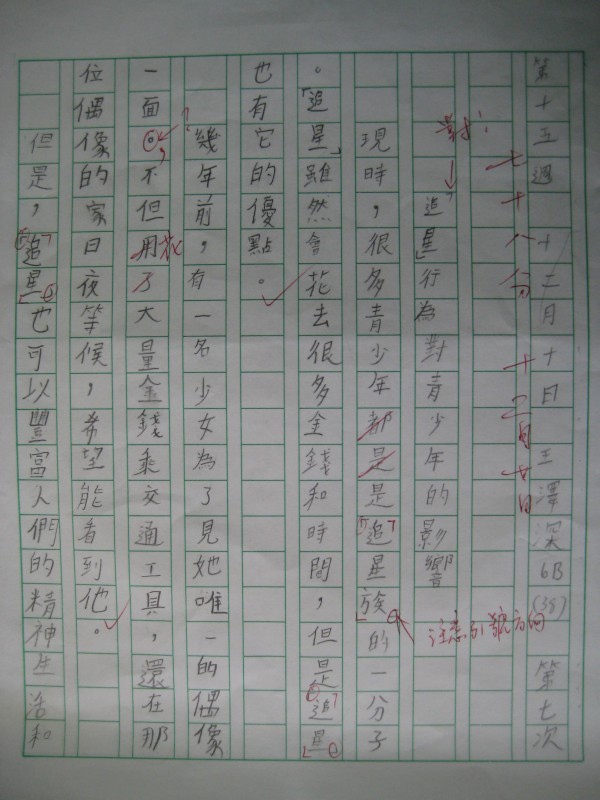 第十五週 十二月十日 王澤深 6B (38) 第七次
七十八分 十二月十日
對!
「追星」行為對青少年的影響
現時，很多青少年都是是「追星族」的一分子
注意引號方向
。「追星」雖然會花去很多金錢和時間，但是「追星」
也有它的優點。
幾年前，有一名少女為了見她唯一的偶像
一面。不但用了大量金錢乘交通工具，還在那
位偶像的家日夜等候，希望能看到他。
但是，「追星」也可以豐富人們的精神生活和